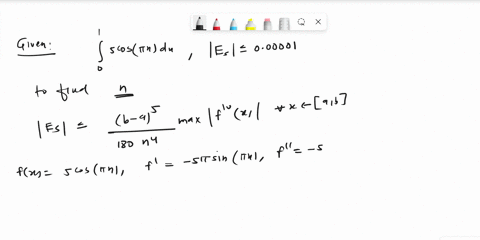 Given:
∫₀¹ 5cos(πx)dx , |Es| ≤ 0.00001
to find n
|Es| ≤ (b-a)⁵ / 180 n⁴ max |f^iv(x)| ∀ x ← [a,b]
f(x)= 5cos(πx), f' = -5π sin(πx), f'' = -5